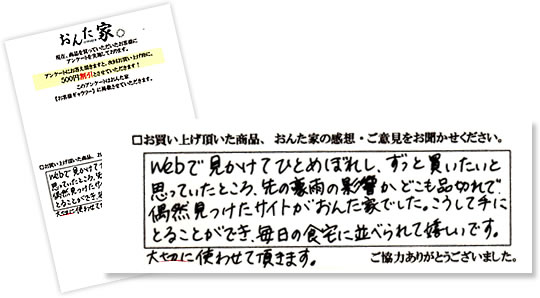 おんた家。
現在、商品を買っていただいたお客様に
アンケートを実施しております。
アンケートにお答え頂きますと、次回お買い上げ時に、
500円割引とさせていただきます!
このアンケートはおんた家
《お客様ギャラリー》に掲載させていただきます。
□お買い上げ頂いた商品、お
Webで見かけて
思っていたところ、
偶然見つけたサ
とることができ、毎
大切に使わせて
□お買い上げ頂いた商品、おんた家の感想・ご意見をお聞かせください。
Webで見かけてひとめぼれし、ずっと買いたいと
思っていたところ、先の豪雨の影響かどこも品切れで
偶然見つけたサイトがおんた家でした。こうして手に
とることができ、毎日の食宅に並べられて嬉しいです。
大切に使わせて頂きます。
ご協力ありがとうございました。